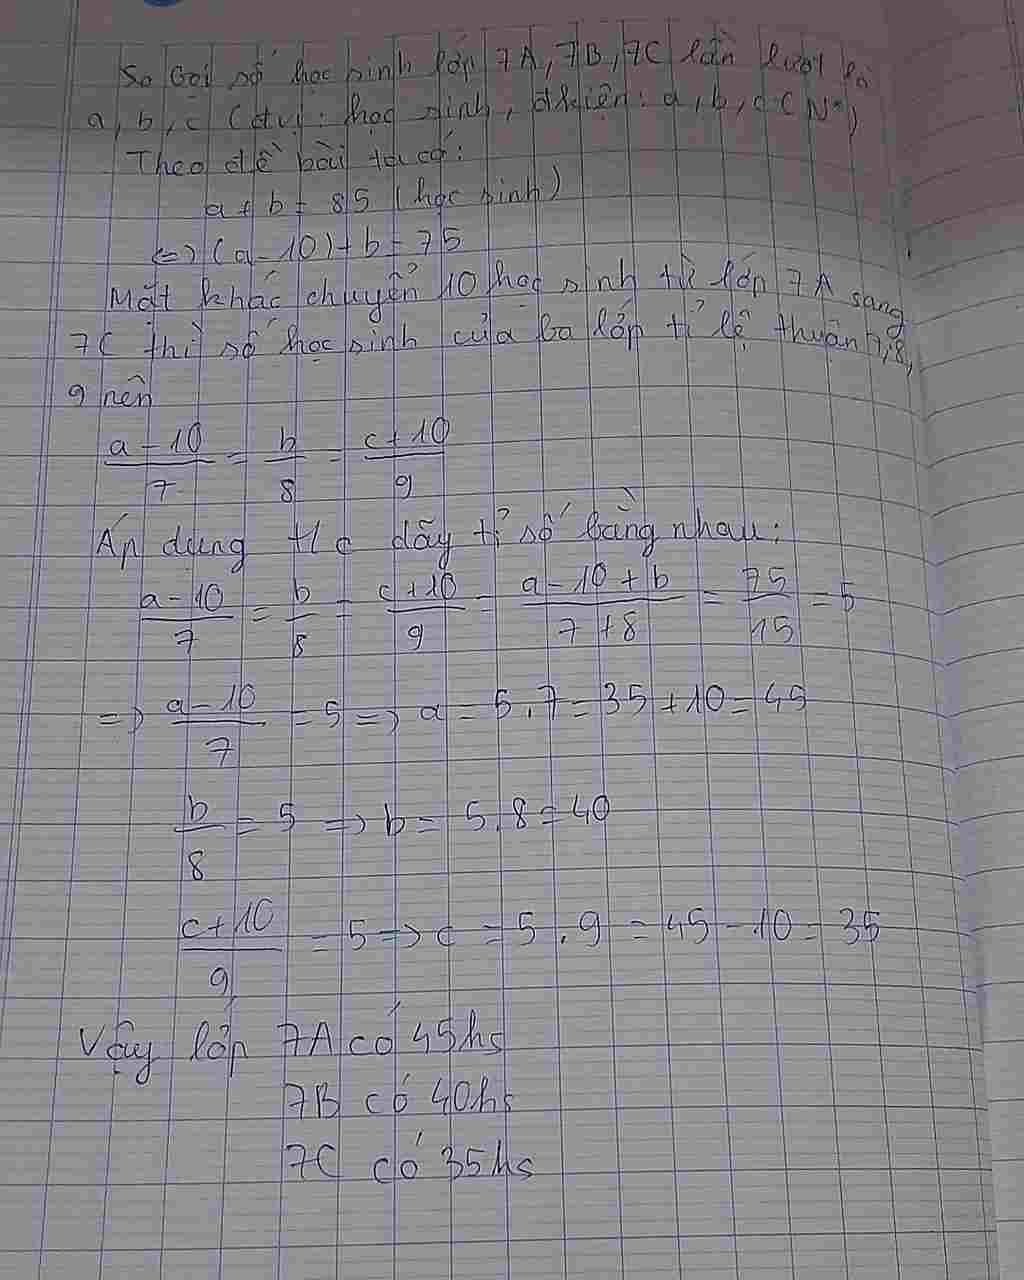 So Gọi số học sinh lớp 7A, 7B, 7C lần lượt là
a, b, c (đvị: học sinh, đkiện: a, b, c ∈ N*)
Theo đề bài ta có:
a + b = 85 (học sinh)
<=> (a - 10) + b = 75
Mặt khác chuyển 10 học sinh từ lớp 7A sang
7C thì số học sinh của ba lớp tỉ lệ thuận 7, 8,
9 nên
a - 10 / 7 = b / 8 = c + 10 / 9
Áp dụng t/c dãy tỉ số bằng nhau:
a - 10 / 7 = b / 8 = c + 10 / 9 = a - 10 + b / 7 + 8 = 75 / 15 = 5
=> a - 10 / 7 = 5 => a = 5 . 7 = 35 + 10 = 45
b / 8 = 5 => b = 5 . 8 = 40
c + 10 / 9 = 5 => c = 5 . 9 = 45 - 10 = 35
Vậy lớp 7A có 45hs
7B có 40hs
7C có 35hs